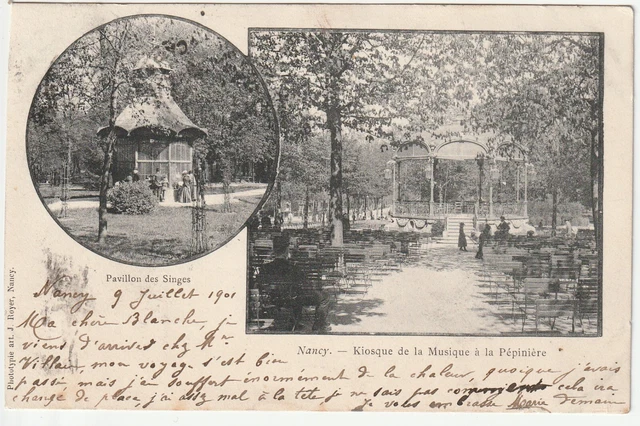 Pavillon des Singes
Nancy. — Kiosque de la Musique à la Pépinière
Phototypie art. J. Royer, Nancy.
Nancy 9 Juillet 1901
Ma chère Blanche, je
viens d'arriver chez Mr
Villain, mon voyage s'est bien
passé, mais j'ai souffert énormément de la chaleur, quoique j'avais
change de place, j'ai assez mal à la tête je ne sais pas comment cela ira
Je vous embrasse Marie demain